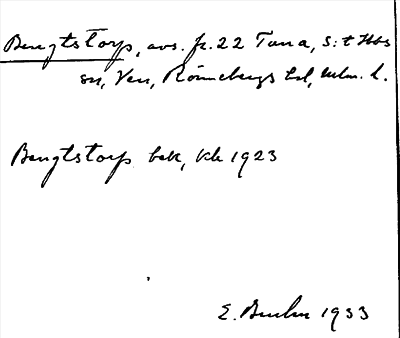 Bengtstorp, avs. fr. 22 Tuna, S:t Ibbs
sn, Ven, Rönnebergs hd, Mlm. l.
Bengtstorp bek, kk 1923
E. 1933